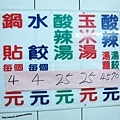 酸辣湯餃
酸辣湯 25元
玉米湯 25元
水餃 每個 4元
鍋貼 每個 4元